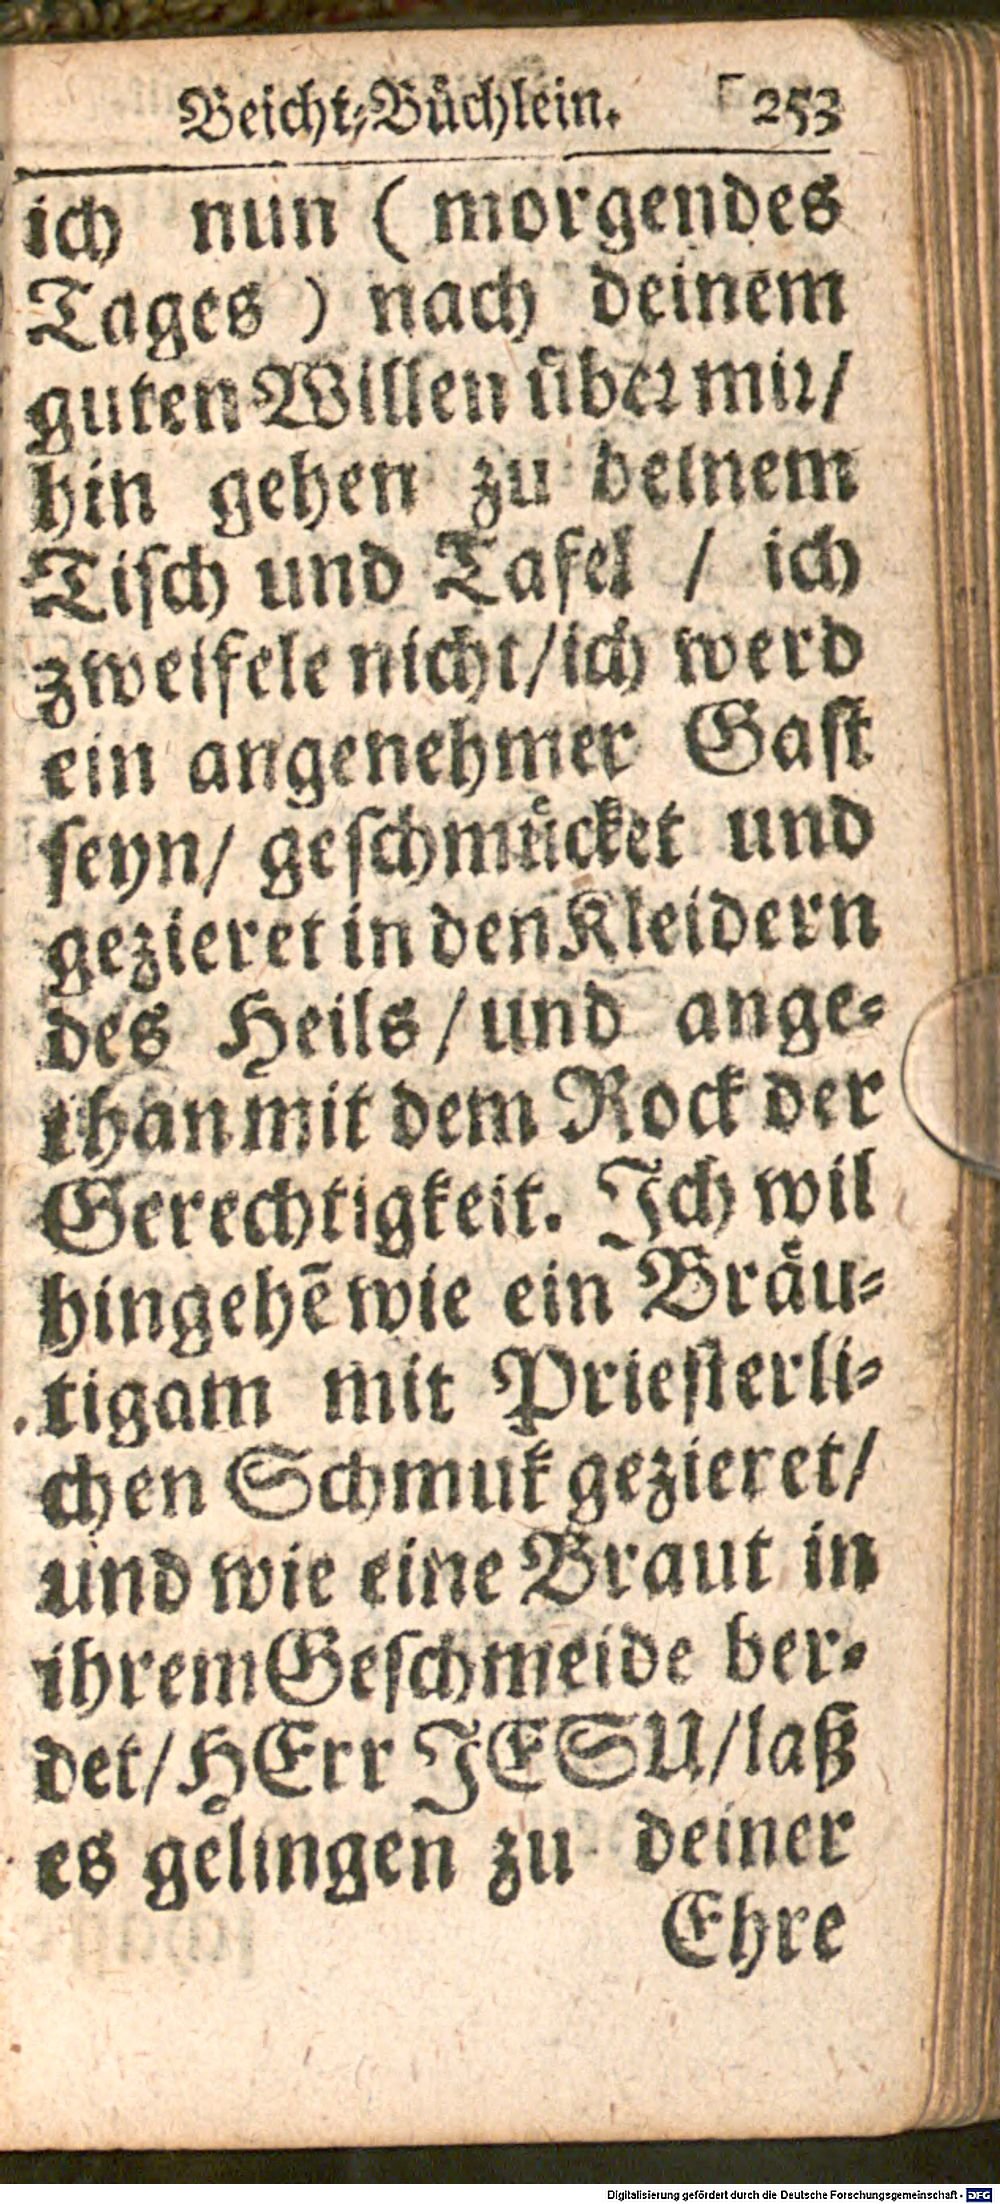 Beicht-Büchlein. 253
ich nun ( morgendes
Tages ) nach deinem
guten Willen über mir/
hin gehen zu deinem
Tisch und Tafel / ich
zweifele nicht/ich werd
ein angenehmer Gast
seyn/ geschmücket und
gezieret in den Kleidern
des Heils /und ange-
than mit dem Rock der
Gerechtigkeit. Ich wil
hingehē wie ein Bräu-
tigam mit Priesterli-
chen Schmuk gezieret/
und wie eine Braut in
ihrem Geschmeide ber-
det/HErr JESU/laß
es gelingen zu deiner
Ehre
Digitalisierung gefördert durch die Deutsche Forschungsgemeinschaft - DFG